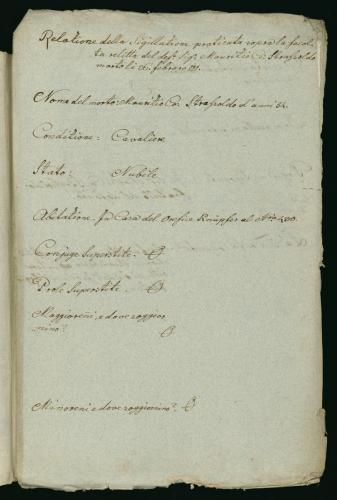 Relatione della Sigillation praticata sopra la facol-
ta relitta del def: Sigr: Mauritio Co: Strasoldo
morto li 26. febraro
Nome del morto: Mauritio Co: Strasoldo d'anni 54.
Conditione: Cavaliere
Stato: Nubile
Abitatione: In Casa del Orefice Knüpfer al No: 400.
Conjuge Superstite. O
Prole Superstite. O
Maggioreni, e dove soggior
nino? O
Minoreni e dove soggiornino? O